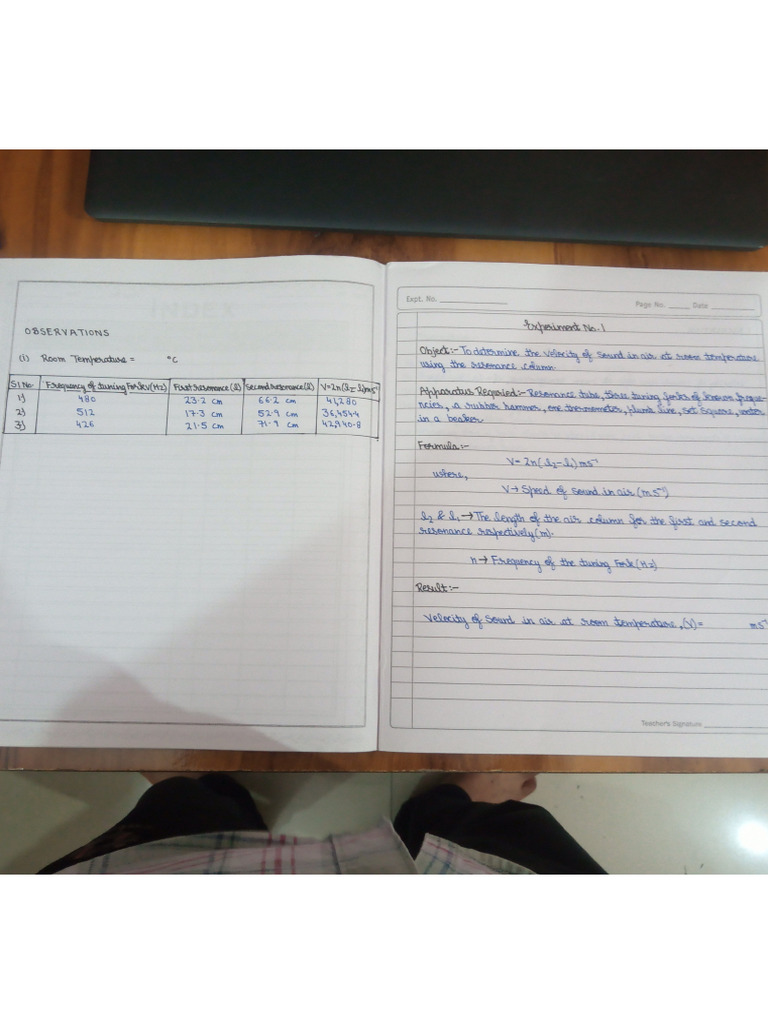 OBSERVATIONS
(i) Room Temperature = °C
Sl No. Frequency of tuning Fork v(Hz) First resonance (l) Second resonance (l) V=2n(l2- l1)ms-1
1) 480 23.2 cm 66.2 cm 41,280
2) 512 17.3 cm 52.9 cm 36,454.4
3) 426 21.5 cm 71.9 cm 42,940.8
Expt. No.
Page No. Date
Experiment No. 1
Object:- To determine the velocity of sound in air at room temperature
using the resonance column.
Apparatus Required:- Resonance tube, three tuning forks of known freque-
ncies, a rubber hammer, one thermometer, plumb line, set square, water
in a beaker.
Formula:-
V= 2n(l2-l1) ms-1
where,
V→ Speed of sound in air (ms-1)
l2 & l1 → The length of the air column for the first and second
resonance respectively (m).
n → Frequency of the tuning Fork (Hz)
Result:-
Velocity of sound in air at room temperature, (V) = ms-1
Teacher's Signature